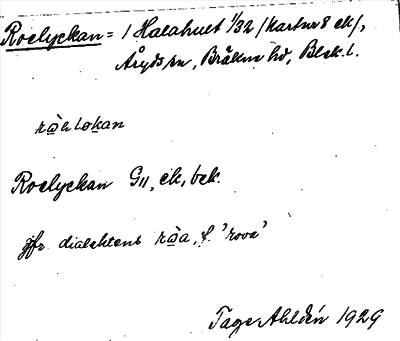 Roelyckan = 1 Halahult 1/32 (Kartnr 8 ek),
Åryds sn, Bräkne hd, Blek. l.
Roelyckan G11, ek, bek.
jfr dialektens ròa, f. 'rova'
Tage Ahldén 1929